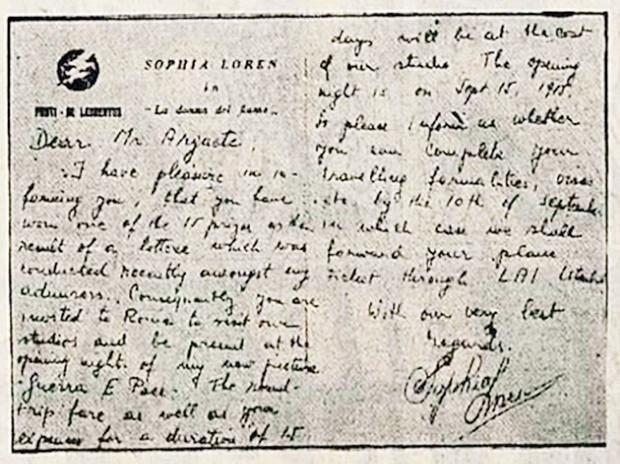 SOPHIA LOREN
in
PONTI - DE LAURENTIIS
La donna del fiume
Dear Mr
I have pleasure in in-
forming you, that you have
won one of the 15 prizes as the
result of a lottere which was
conducted recently amongst my
admirers. Consequently you are
invited to Rome to visit our
studios and be present at the
opening night of my new picture
"Guerra E Pace." The round-
trip fare as well as your
expenses for a duration of 15
days will be at the cost
of our studio The opening
night is on Sept 15,
So please inform us whether
you can complete your
travelling formalities, visa
etc. by the 10th of september
in which case we shall
forward your plane
ticket through LAI Istanbul
With our very best
regards.
Sophia